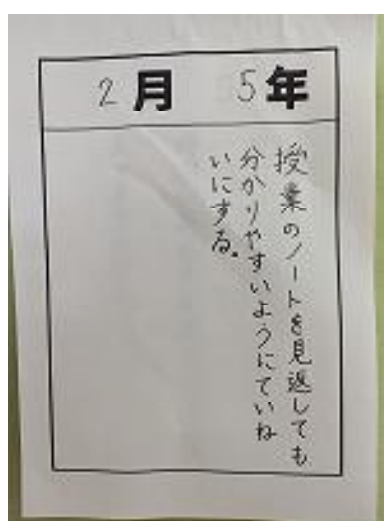 5年 2月
授業のノートを見返しても
分かりやすいようにていね
いにする。